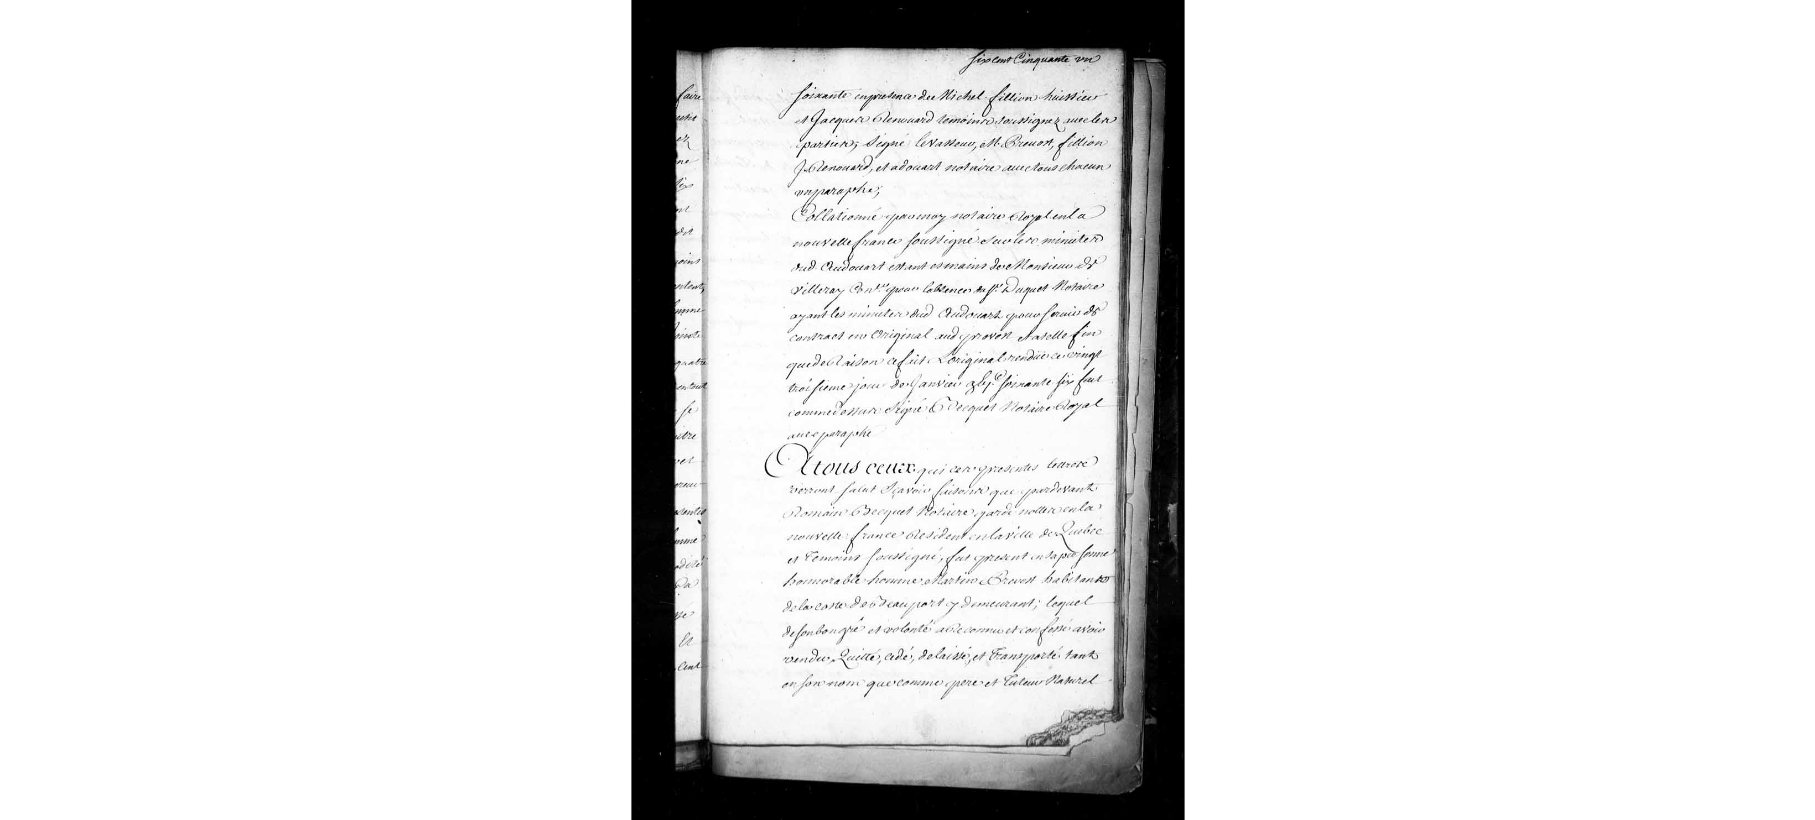 six cent Cinquante un
soixante en presence de Michel fillion huissier
et Jacques Renouard temoins soussignez avec les
parties; signé levasseur, M. Prevost, fillion
J. Renouard, et adouart notaire avec tous chacun
un paraphe;
Collationné par moy notaire Royal en la
nouvelle france soussigné sur les minutes
dud Audouart estant es mains de Monsieur de
Villeray Con.er pour labsence du sr. Duquet Notaire
ayant les minutes dud Audouart pour servir de
contract en Original aud prevost a telle fin
que de Raison ce fait L'original rendüe ce vingt
troisieme jour de Janvier soixante six fait
comme dessus signé Becquet Notaire Royal
avec paraphe
A tous ceux qui ces presentes lettres
verront salut sçavoir faisons que pardevant
Romain Becquet Notaire garde nottes en la
nouvelle france Resident en la ville de Quebec
et temoins soussigné, fut present en sa personne
honnorable homme Martin Prevost habitant
de la coste de Beauport y demeurant; lequel
de son bon gré et volonté a Reconnu et confessé avoir
vendu, Quitté, cedé, delaissé, et Transporté tant
en son nom que comme pere et Tuteur Naturel
faire
ne
moins
quatre
se
comme
Et
Cent